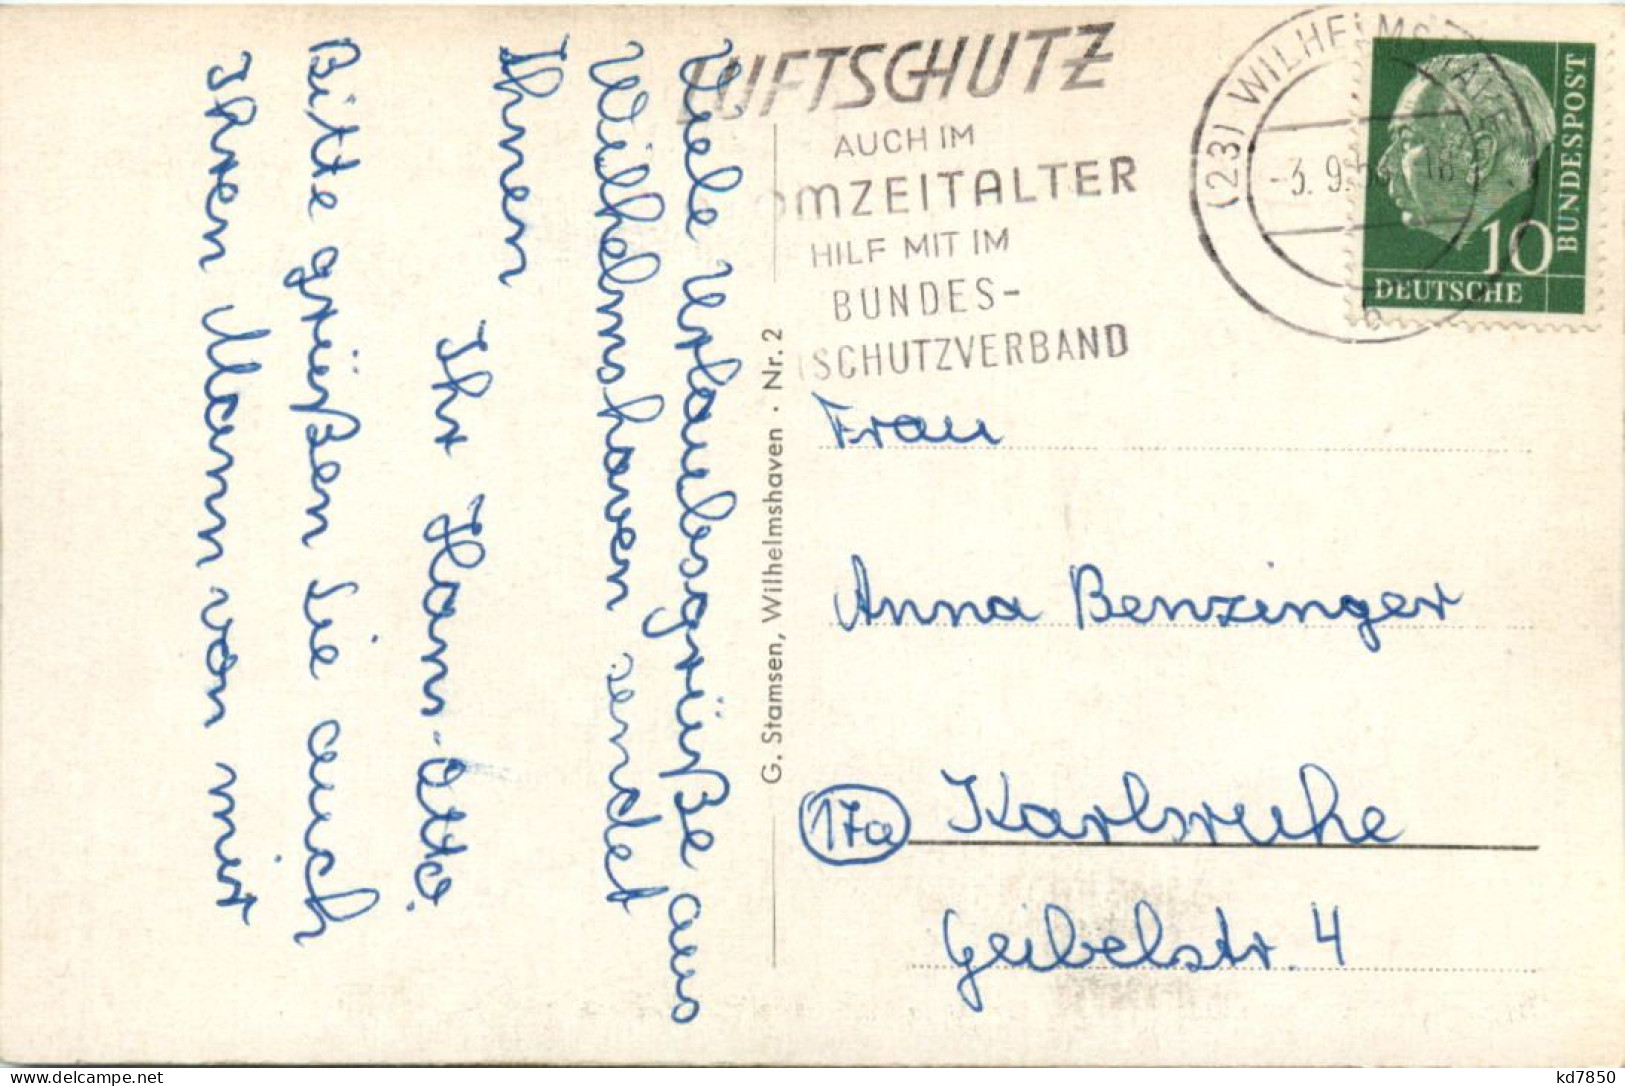 Viele Urlaubsgrüße aus
Wilhelmshaven sendet
Ihnen
Ihr Hans-Otto.
Bitte grüßen Sie auch
Ihren Mann von mir
G. Stamsen, Wilhelmshaven · Nr. 2
LUFTSCHUTZ
AUCH IM
OMZEITALTER
HILF MIT IM
BUNDES-
SCHUTZVERBAND
(23) WILHELMSHAVEN
-3. 9. 18
b
10
DEUTSCHE
BUNDESPOST
Frau
Anna Benzinger
17a Karlsruhe
Geibelstr. 4
delcampe.net
kd7850